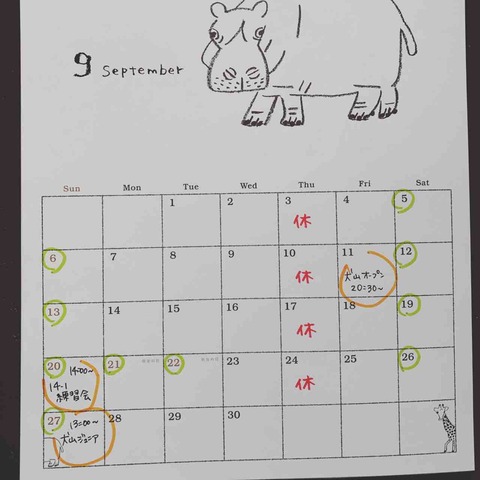 9 September
Sun Mon Tue Wed Thu Fri Sat
1 2 3 4 5
休
6 7 8 9 10 11 12
休 犬山オープン
20:30~
13 14 15 16 17 18 19
休
20 14:00~ 21 22 23 24 25 26
14.1 休
練習会
27 13:00~ 28 29 30
犬山ジュニア